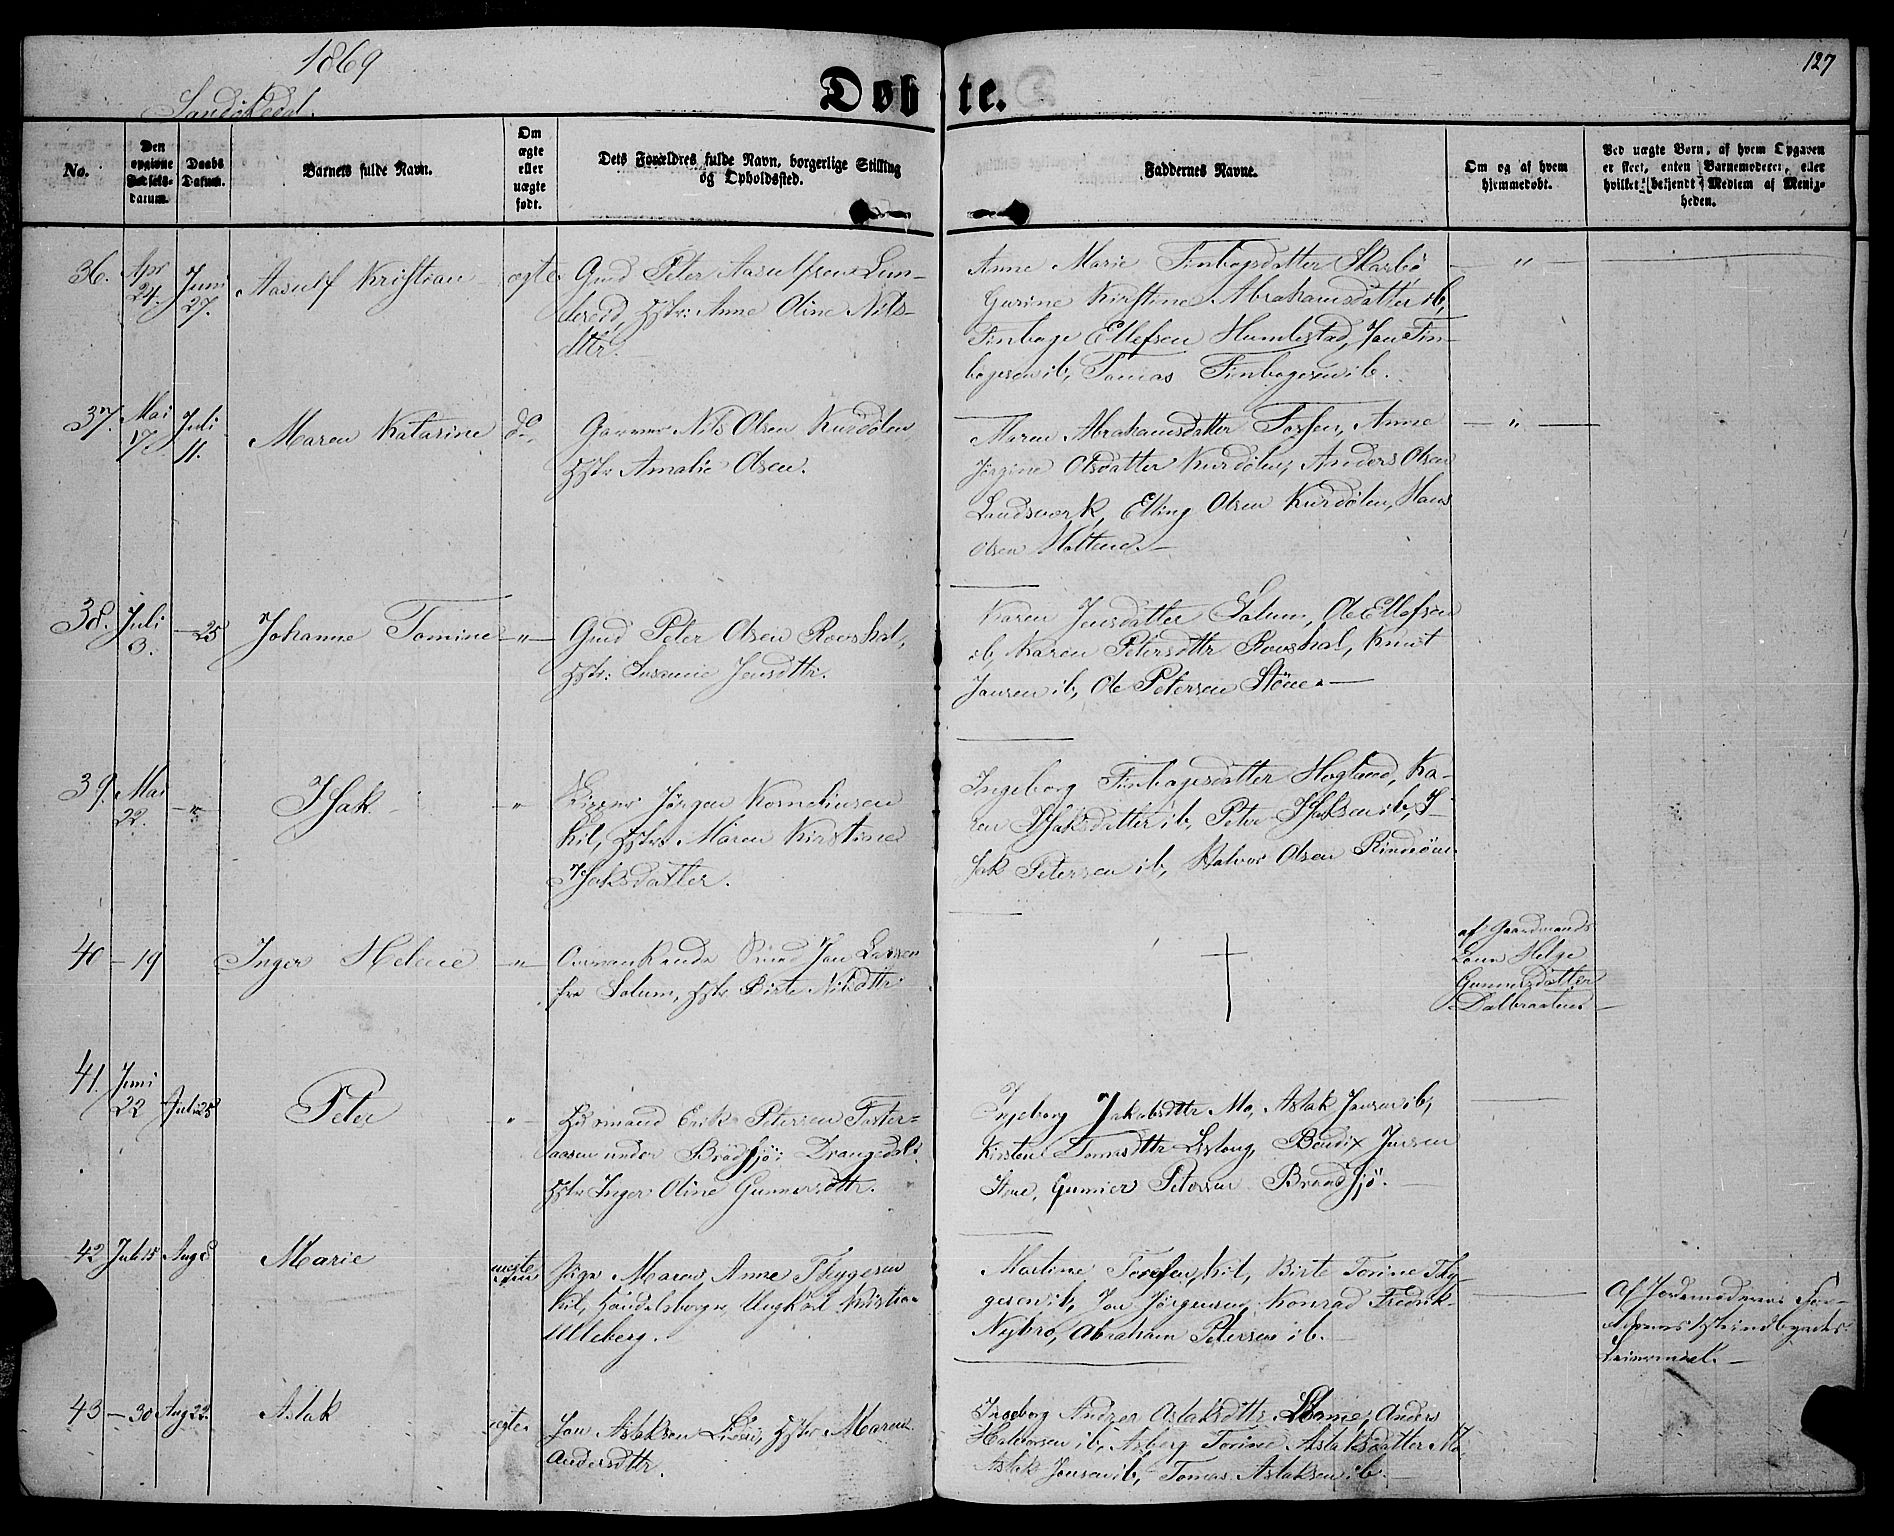 1869
127
Sandøkedal.
Døbte.
No.
Den opgivne Fødsels-datum.
Daabs Datum.
Barnets fulde Navn.
Om ægte eller uægte født.
Dets Forældres fulde Navn, borgerlige Stilling og Opholdssted.
Faddernes Navne.
Om og af hvem hjemmedøbt.
Ved uægte Børn, af hvem Opgaven er skeet, enten Barnemoderen, eller hvilket bekjendt Medlem af Menigheden.
36. Apr 24. Juni 27. Aasulf Kristian ægte
Gmd Peter Aasulfsen Lun-
dereid, Hstr: Anne Oline Nils-
dttr.
Anne Marie Finbogsdatter Skarbø
Gurine Kirstine Abrahamsdatter ib,
Finboge Ellefsen Humlestad, Jon Fin-
bogesen ib, Tomas Finbogesen ib. — " —
37. Mai 17. Juli 11. Maren Katarine do
Garver Nils Olsen Kurdølen
Hstr Amalie Olsen.
Maren Abrahamsdatter Fossen, Anne
Jørgine Olsdatter Kurdølen, Anders Olsen
Landsverk, Elling Olsen Kurdølen, Hans
Olsen Holtene. — " —
38. Juli 3. — 25 Johanne Tomine — " —
Gmd Peter Olsen Rovshol,
Hstr: Susanne Jensdttr.
Karen Jensdatter Salum, Ole Ellefsen
ib, Karen Petersdttr Rovshol, Knut
Jansen ib, Ole Petersen Stöne. —
39. Mai 22. — " Isak "
Skipper Jörgen Korneliusen
Kil, Hstr: Maren Kirstine
Isaksdatter.
Ingeborg Finbogesdatter Hogland, Ka-
ren Isaksdatter ib, Peter Isaksen ib, I-
sak Petersen ib, Halvor Olsen
40 — 19 Inger Helene — " —
Jon Larsen
fra Solum, Hstr Birte Nilsdttr
af Gaardmands
kone Helge
Gunnersdatter
Dalbraaten
41. Juni 22 Juli 25 Peter — " —
Husmand Erik Petersen Foster-
aasen under Brödsjö i Drangedal
Hstr Inger Oline Gunnersdttr.
Ingeborg Jakobsdttr Mo, Aslak Jensen ib,
Kirsten Tomasdttr Levlong, Bendix Jensen
Stene, Gunner Petersen Brødsjö. —
42 Juli 15 Aug 8 Marie uægte
Pige Maren Anne Thygesen
Kil, Handelsborger Ungkarl Kristian
Ulleberg.
Martine Kil, Birte Torine Thy-
gesen ib, Jon Jörgensen, Konrad Fredrik
Nybro, Abraham Petersen ib. —
Af Jordemoderens
43 — 30 Aug 22. Aslak ægte
Jon Aslaksen Hstr Maren
Andersdttr.
Ingeborg Andrea Aslaksdttr Anders
Halvorsen ib, Asberg Torine Aslaksdatter Mo,
Aslak Jonsen ib, Tomas Aslaksen ib. —